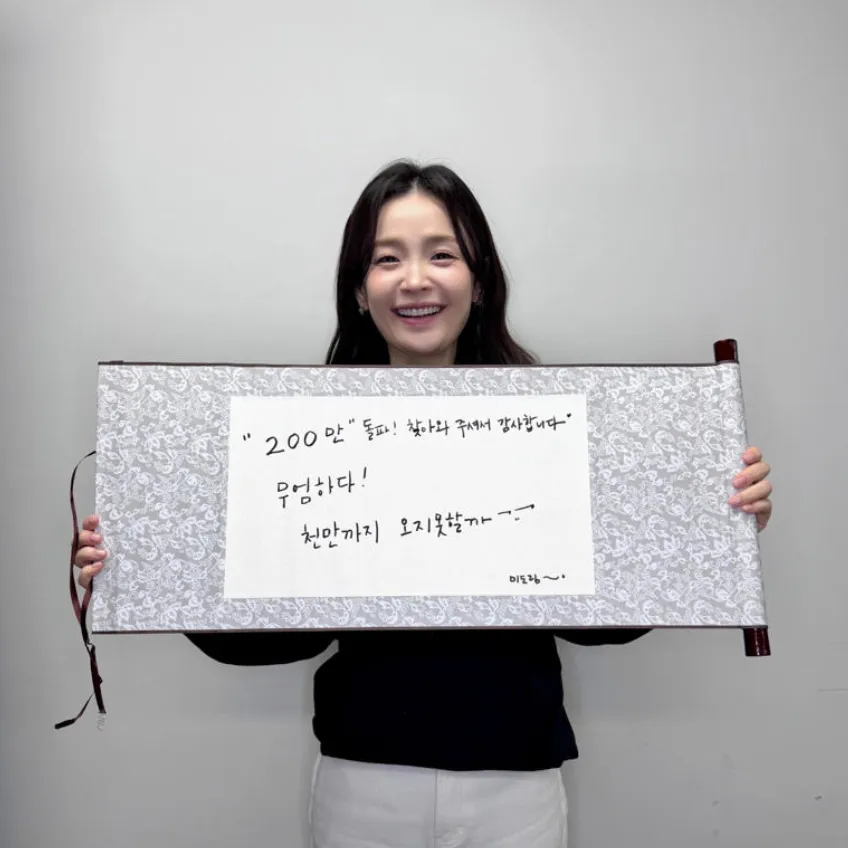 "200만" 돌파! 찾아와 주셔서 감사합니다
무엄하다!
천만까지 오지못할까
미도랑~